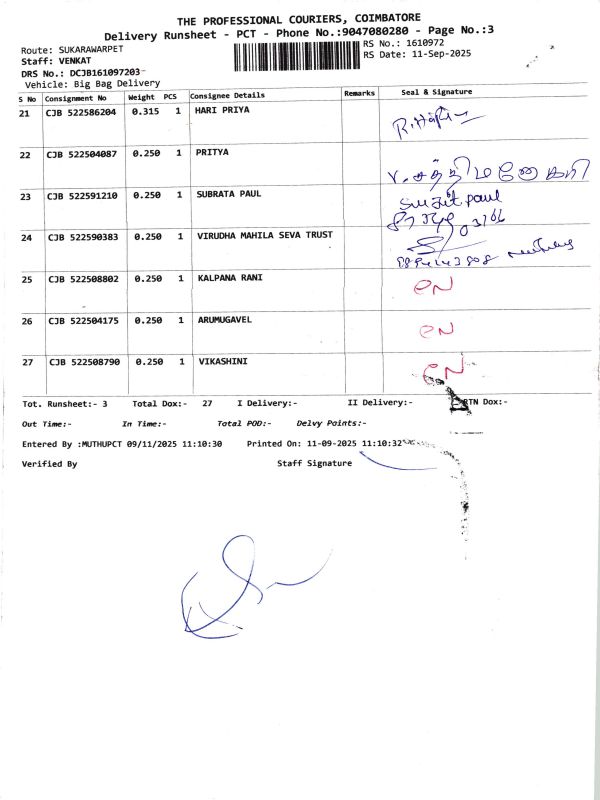 THE PROFESSIONAL COURIERS, COIMBATORE
Delivery Runsheet - PCT - Phone No.:9047080280 - Page No.:3
Route: SUKARAWARPET
RS No.: 1610972
Staff: VENKAT
RS Date: 11-Sep-2025
DRS No.: DCJB161097203
Vehicle: Big Bag Delivery
S No Consignment No Weight PCS Consignee Details Remarks Seal & Signature
21 CJB 522586204 0.315 1 HARI PRIYA
22 CJB 522504087 0.250 1 PRITYA
23 CJB 522591210 0.250 1 SUBRATA PAUL Sujit paul
24 CJB 522590383 0.250 1 VIRUDHA MAHILA SEVA TRUST
25 CJB 522508802 0.250 1 KALPANA RANI
26 CJB 522504175 0.250 1 ARUMUGAVEL
27 CJB 522508790 0.250 1 VIKASHINI
Tot. Runsheet:- 3 Total Dox:- 27 I Delivery:- II Delivery:- RTN Dox:-
Out Time:- In Time:- Total POD:- Delvy Points:-
Entered By :MUTHUPCT 09/11/2025 11:10:30 Printed On: 11-09-2025 11:10:32
Verified By Staff Signature